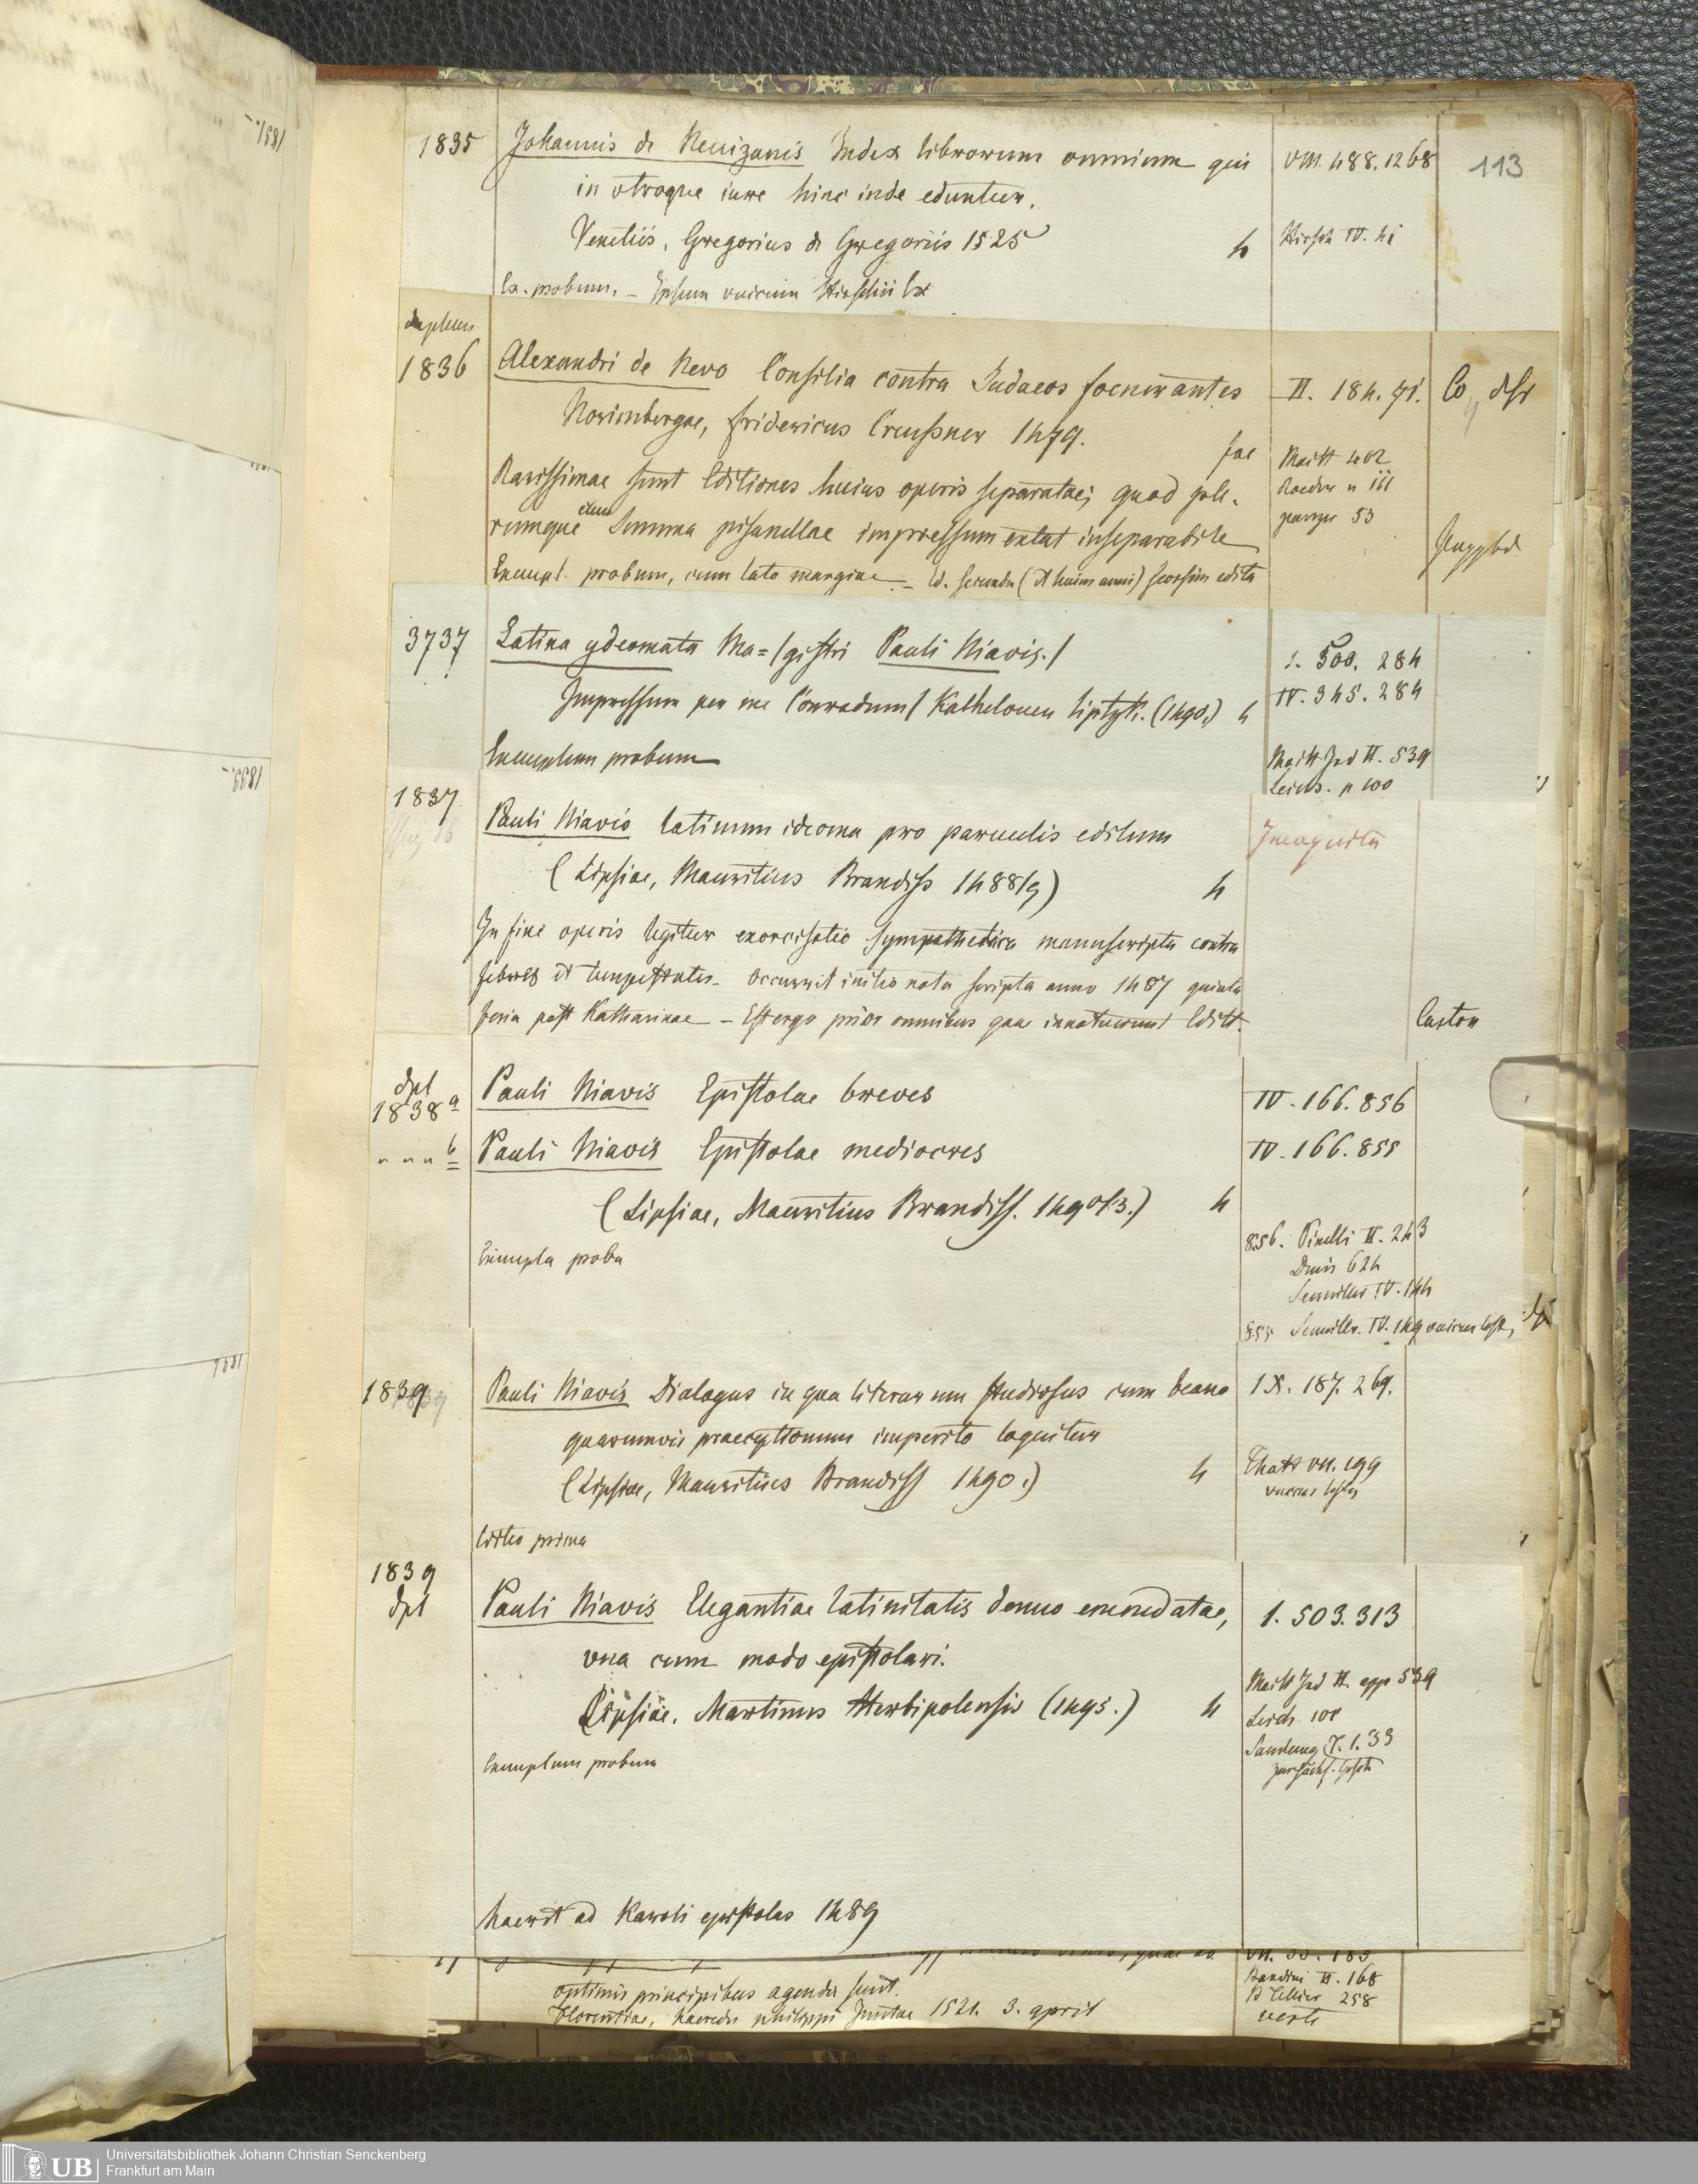 113
1835 Johannis de Neuizanis Index librorum omnium qui VIII. 488. 1268
in vtroque iure hinc inde eduntur.
Venetiis, Gregorius de Gregoriis 1525 4 Hirsch IV. 41
Ex. probum. – Ipsum vnicum Hirschii Ex
duplum
1836 Alexandri de Nevo Consilia contra Judaeos foenerantes II. 184. 91. Co
Norimbergae, Fridericus Creussner 1479. fol
Maitt 402
Roeder n 111
panzer 53
Rarissimae sunt Editiones huius operis separatae; quod ple-
rumque cum Summa pisanellae impressum extat inseparabile
Exempl. probum, cum lato margine – Ed. secunda (et huius anni) seorsim edita
3737 Latina ydeomata Ma=/gistri Pauli Niavis./ 1. 500. 284
Impressum per me Conradum/ Kathelouen liptzk. (1490.) 4 IV. 345. 284
Exemplum probum Maitt Ind II. 539
Leich. p 100
1837 Pauli Niavis latinum ideoma pro paruulis editum Incognita
(Lipsiae, Mauritius Brandiss 1488/9) 4
In fine operis legitur exorcisatio sympathetica manuscripta contra
febres et tempestates – occurrit initio nota scripta anno 1487 quinta
feria post Katharinae – Est ergo prior omnibus quae innotuerunt Editt.
dpl
1838 a Pauli Niavis Epistolae breves IV. 166. 856
" " " b Pauli Niavis Epistolae mediocres IV. 166. 855
(Lipsiae, Mauritius Brandiss. 1490/3.) 4
Exempla proba
856. Pinelli II. 243
Denis 624
Seemiller IV. 144
855 Seemiller. IV. 149 vnicus test.
1839 Pauli Niavis Dialogus in quo literarum studiosus cum beano 1X. 187. 269.
quarumvis praeceptionum imperito loquitur
(Lipsiae, Mauritius Brandiss 1490.) 4 Thott VII. 199
vnicus testis
Editio prima
1839
dpl
Pauli Niavis Elegantiae latinitatis denuo emendatae, 1. 503. 313
vna cum modo epistolari.
Lipsiae. Martinus Herbipolensis (1495.) 4
Maitt Ind II. app 539
Leich 108
Samlung T. 1. 33
zur sächs. Gesch
Exemplum probum
haeret ad Karoli epistolas 1489
optimis principibus agenda sunt.
Florentiae, haeredes philippi Juntae 1521. 3. april
Bandini II. 168
258
Universitätsbibliothek Johann Christian Senckenberg
Frankfurt am Main
UB